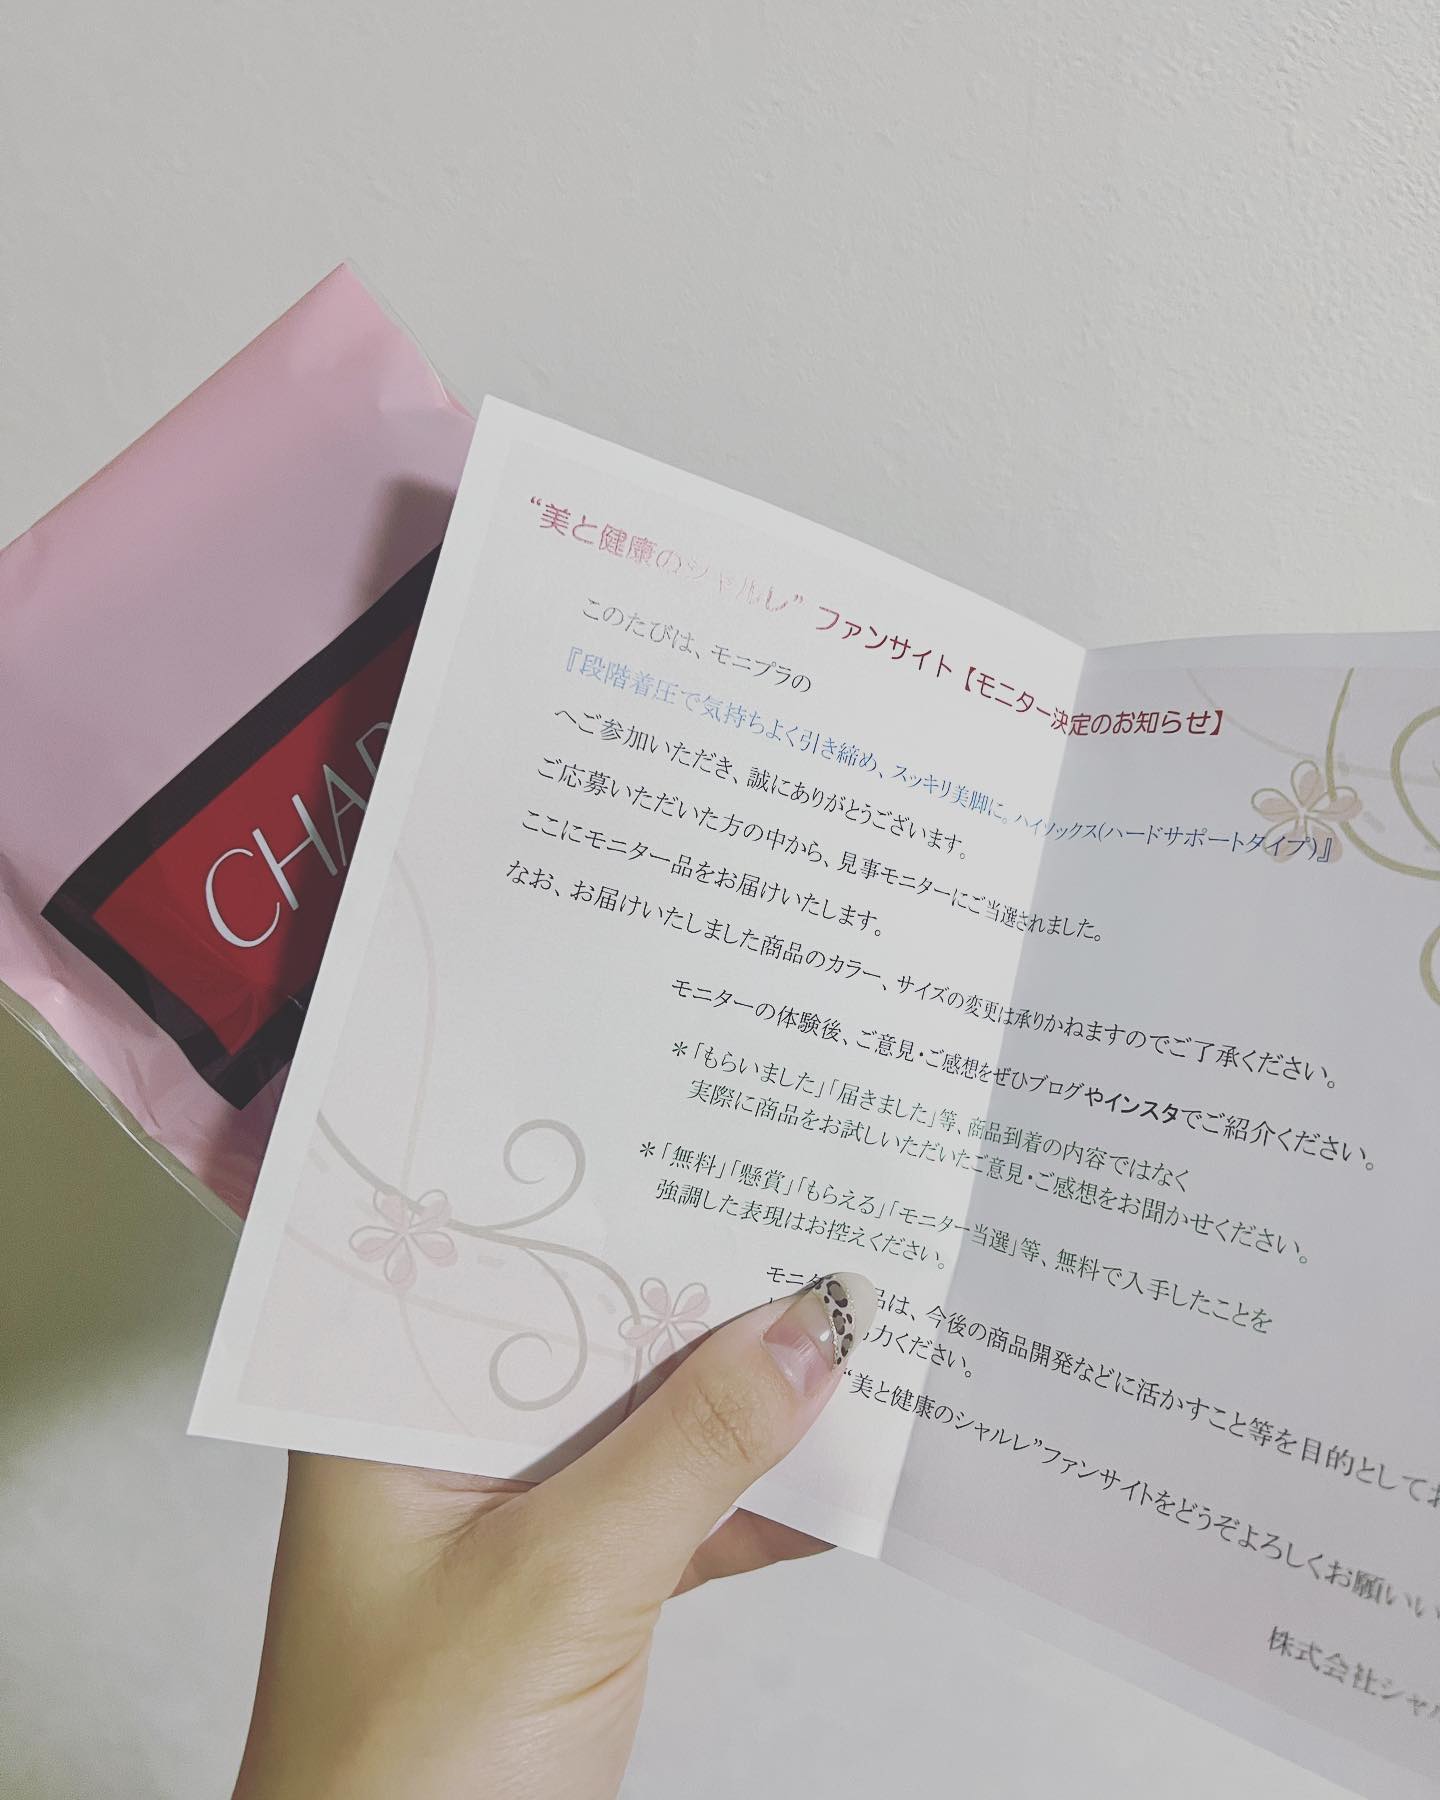 CHAR
“美と健康のシャルレ” ファンサイト【モニター決定のお知らせ】
このたびは、モニプラの
『段階着圧で気持ちよく引き締め、スッキリ美脚に。ハイソックス(ハードサポートタイプ)』
へご参加いただき、誠にありがとうございます。
ご応募いただいた方の中から、見事モニターにご当選されました。
ここにモニター品をお届けいたします。
なお、お届けいたしました商品のカラー、サイズの変更は承りかねますのでご了承ください。
モニターの体験後、ご意見・ご感想をぜひブログやインスタでご紹介ください。
＊「もらいました」「届きました」等、商品到着の内容ではなく
実際に商品をお試しいただいたご意見・ご感想をお聞かせください。
＊「無料」「懸賞」「もらえる」「モニター当選」等、無料で入手したことを
強調した表現はお控えください。
モニタ 品は、今後の商品開発などに活かすこと等を目的としてお
力ください。
“美と健康のシャルレ”ファンサイトをどうぞよろしくお願いい
株式会社シャル